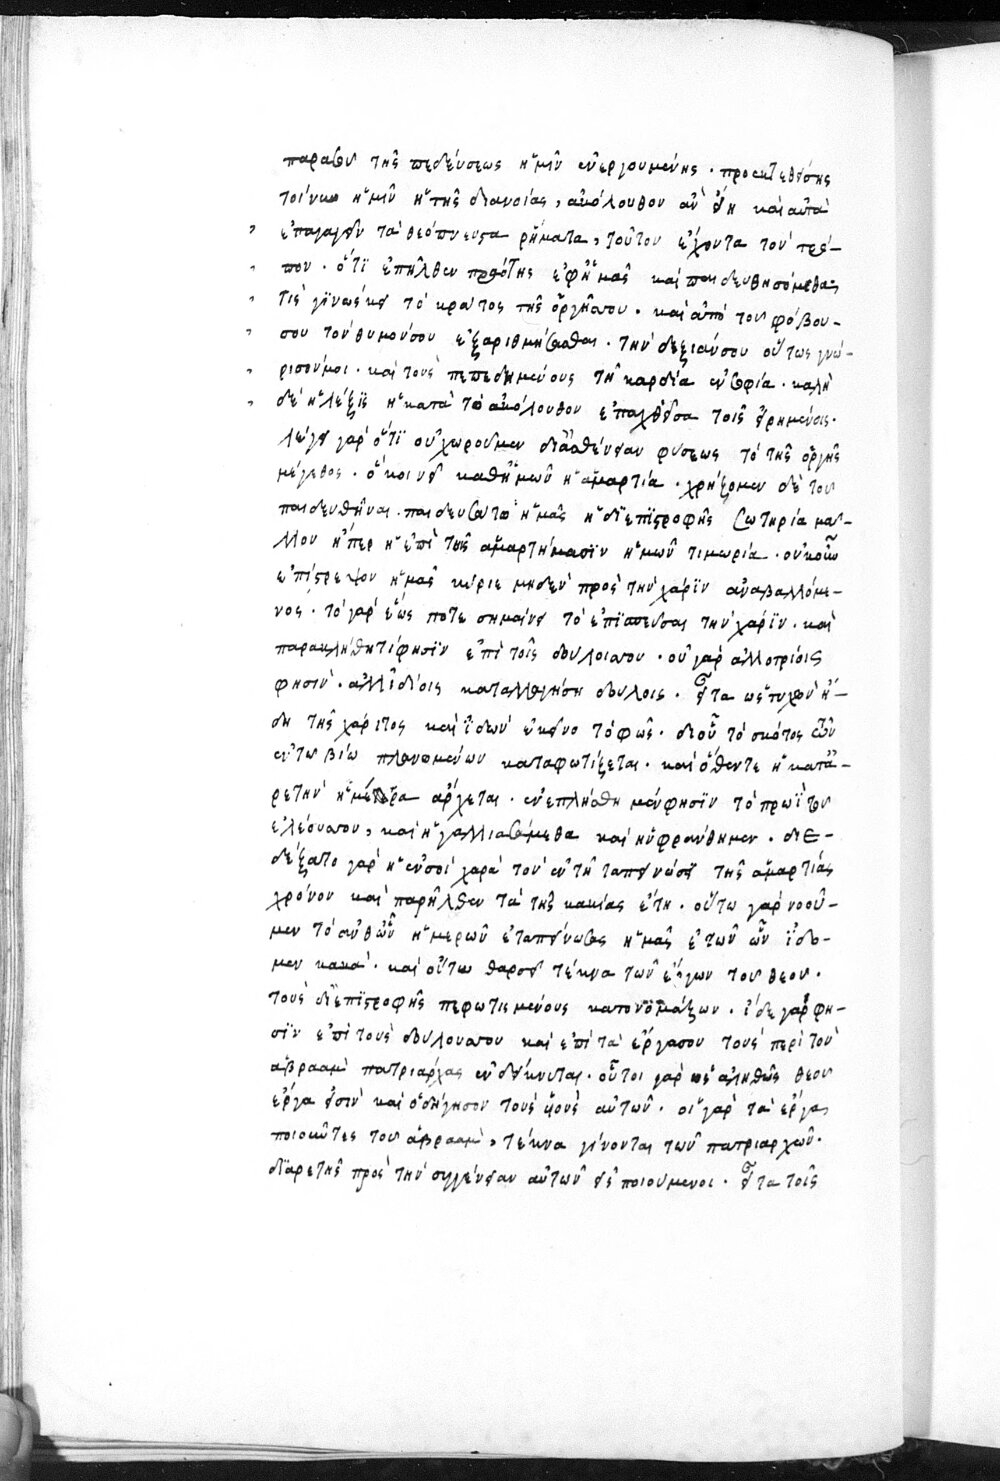 παραβου τῆς πεδεύσεως ἡμῖν ἐνεργουμένης · προεκτεθείσης
τοίνυν ἡμῖν ἤτης διανοίας, ἀκόλουθον ἂν εἴη καὶ αὐτὰ
ἐπαγαγεῖν τὰ θεόπνευστα ῥήματα, τοῦτον ἔχοντα τὸν τρό-
πον · ὅτι ἐπῆλθεν πραότης ἐφ' ἡμᾶς καὶ παιδευθησόμεθα
τίς γινώσκει τὸ κράτος τῆς ὀργῆς σου · καὶ ἀπὸ τοῦ φόβου
σου τὸν θυμόν σου ἐξαριθμήσασθαι · τὴν δεξιάν σου οὕτως γνώ-
ρισόν μοι · καὶ τοὺς πεπεδημένους τῇ καρδία ἐν σοφία · καλὴ
δὲ ἡ λέξις ἡ κατὰ τὸ ἀκόλουθον ἐπαχθεῖσα τοῖς εἰρημένοις ·
λέγει γὰρ ὅτι οὐ χωροῦμεν διἀσθένειαν φύσεως τὸ τῆς ὀργῆς
μέγεθος · ὃ κινεῖ καθ' ἡμῶν ἡ ἁμαρτία · χρήζομεν δὲ τοῦ
παιδευθῆναι · παιδευσάτω ἡμᾶς ἡ δι' ἐπιστροφῆς σωτηρία μᾶλ-
λον ἤπερ ἡ ἐπὶ τοῖς ἁμαρτήμασιν ἡμῶν τιμωρία · οὐκοῦν
ἐπίστρεψον ἡμᾶς κύριε μηδὲν πρὸς τὴν χάριν ἀναβαλλόμε-
νος · τὸ γὰρ ἕως ποτε σημαίνει τὸ ἐπισπεῦσαι τὴν χάριν · καὶ
παρακλήθητί φησιν ἐπὶ τοῖς δούλοις σου · οὐ γὰρ ἀλλοτρίοις
φησιν · ἀλλ' ἰδίοις καταλλαγήση δούλοις · εἶτα ὡς τυχὼν ἤ-
δη τῆς χάριτος καὶ ἰδὼν ἐκεῖνο τὸ φῶς · δι' οὗ τὸ σκότος τῶν
ἐν τῶ βίω πλανωμένων καταφωτίζεται · καὶ ὅθεν τε ἡ κατ' ἀ-
ρετὴν ἡμέρα ἄρχεται · ἐνεπλήσθημέν φησιν τὸ πρωῒ τοῦ
ἐλέους σου, καὶ ἠγαλλιασάμεθα καὶ ηὐφράνθημεν · διε-
δέξατο γὰρ ἡ ἐν σοὶ χαρὰ τὸν ἐν τῇ ταπεινώσει τῆς ἁμαρτίας
χρόνον καὶ παρῆλθεν τὰ τῆς κακίας ἔτη · οὕτω γὰρ νοοῦ-
μεν τὸ ἀνθ' ὧν ἡμερῶν ἐταπείνωσας ἡμᾶς ἐτῶν ὧν ἴδο-
μεν κακά · καὶ οὕτω θαρσεῖ τέκνα τῶν ἔργων τοῦ θεοῦ ·
τοὺς δι' ἐπιστροφῆς πεφωτισμένους κατονομάζων · ἴδε γάρ φη-
σιν ἐπὶ τοὺς δούλους σου καὶ ἐπὶ τὰ ἔργα σου τοὺς περὶ τὸν
ἀβραὰμ πατριάρχας ἐνδείκνυται · οὗτοι γὰρ ὡς ἀληθῶς θεοῦ
ἔργα εἰσὶν καὶ ὁδήγησον τοὺς υἱοὺς αὐτῶν · οἱ γὰρ τὰ ἔργα
ποιοῦντες τοῦ ἀβραὰμ, τέκνα γίνονται τῶν πατριαρχῶν ·
δι' ἀρετῆς πρὸς τὴν συγγένειαν αὐτῶν εἰσποιούμενοι · εἶτα τοῖς